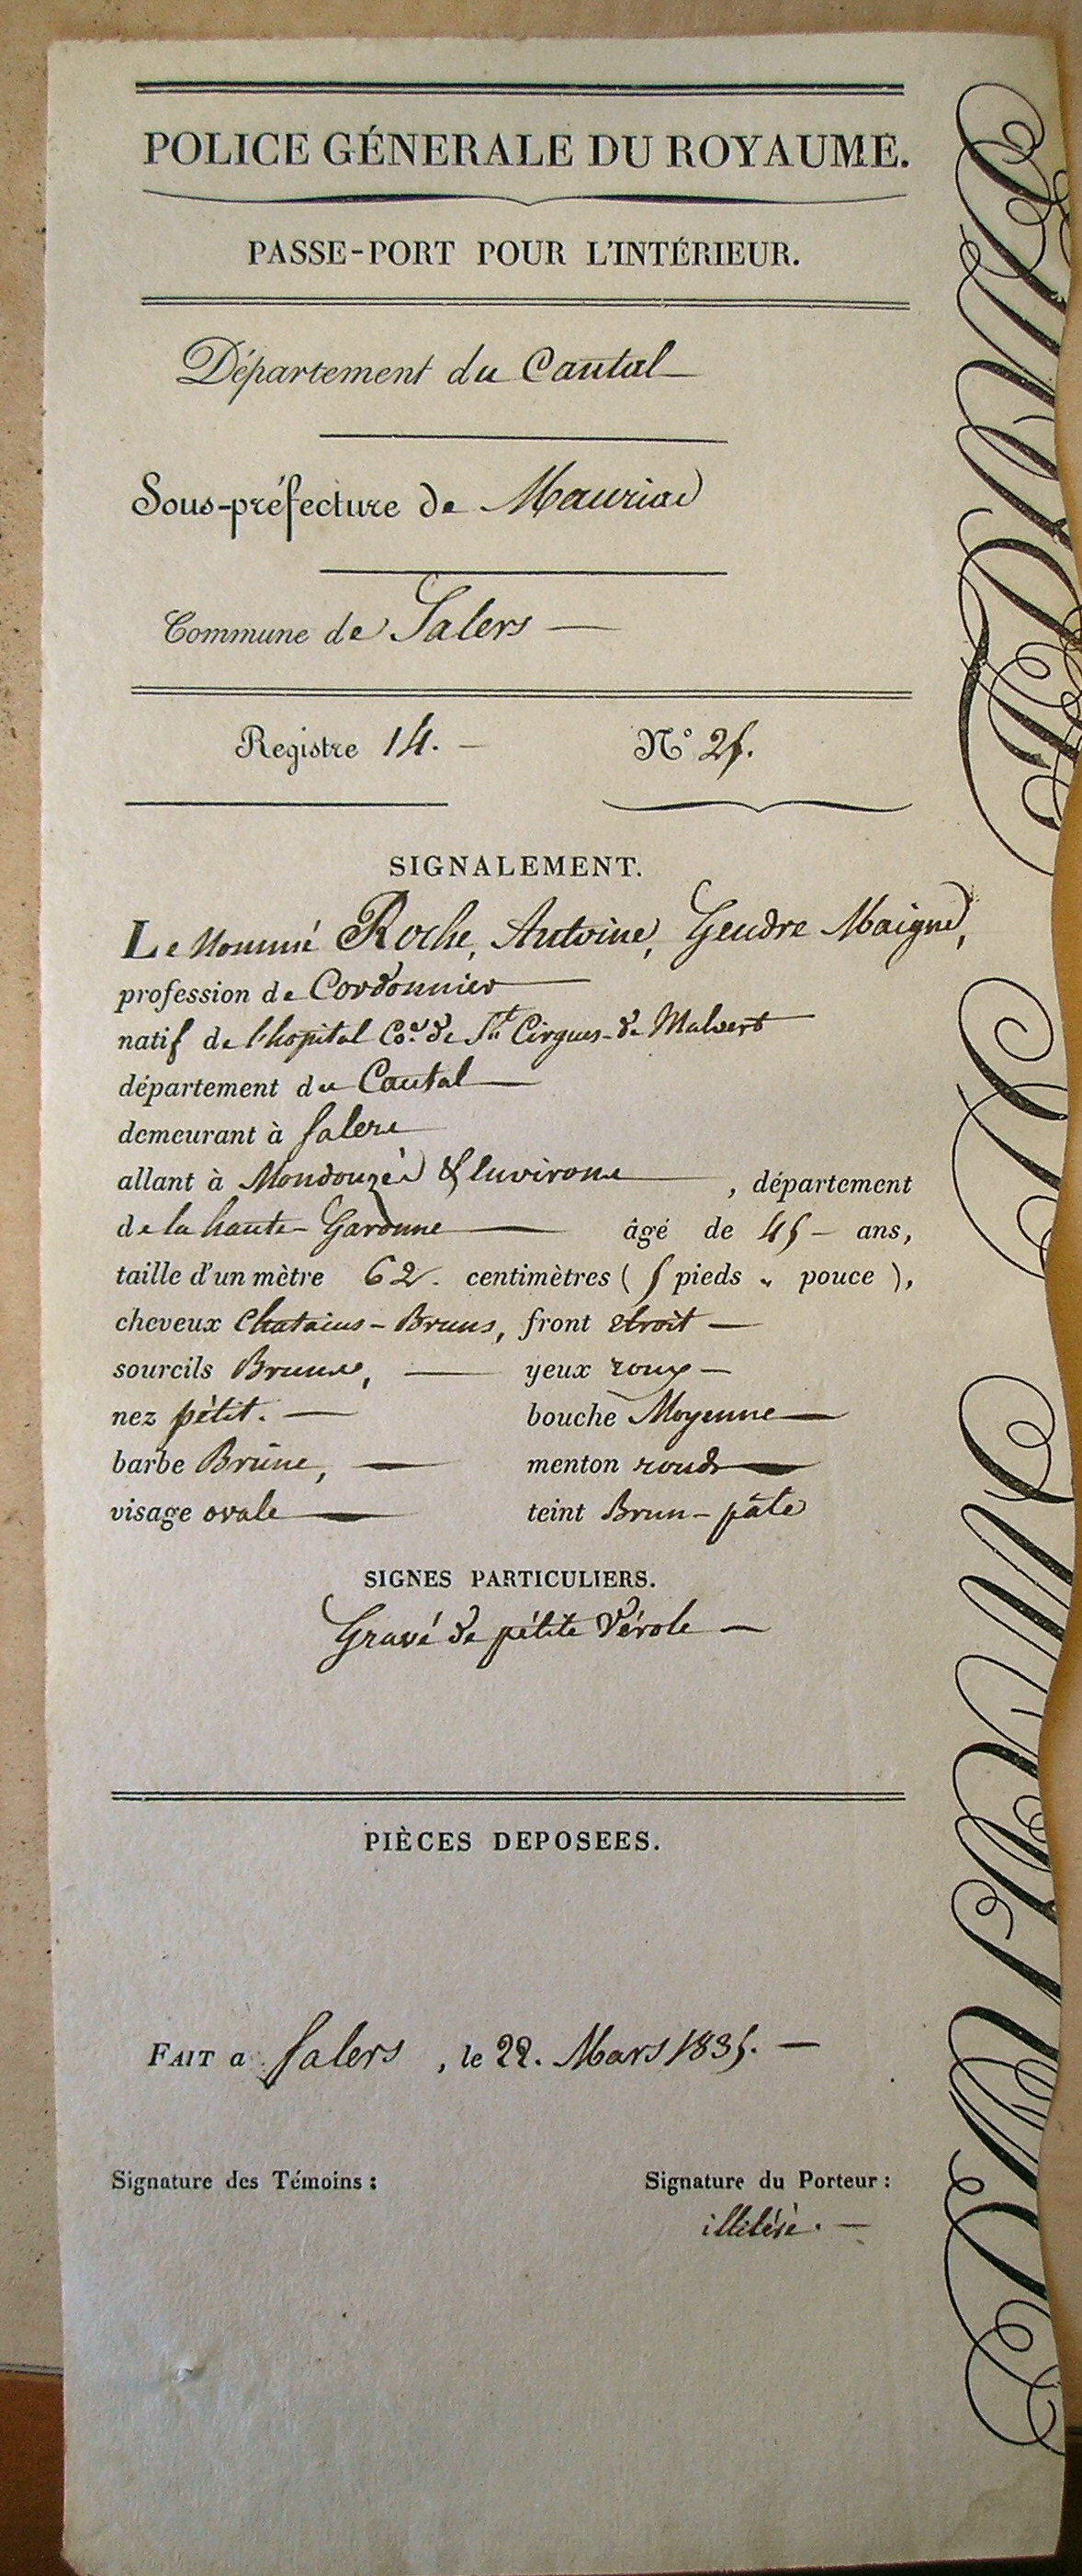 POLICE GÉNERALE DU ROYAUME.
PASSE-PORT POUR L'INTÉRIEUR.
Département du Cantal
Sous-préfecture de Mauriac
Commune de Salers
Registre 14. N° 25.
SIGNALEMENT.
Le Nommé Roche, Antoine, Gendre Maigne,
profession de Cordonnier
natif de l'hopital Cne de St Cirgues-de Malvert
département du Cantal
demeurant à Salers
allant à & Environs, département
de la haute-Garonne âgé de 45 ans,
taille d'un mètre 62. centimètres ( 5 pieds " pouce ),
cheveux Chatains-Bruns, front etroit
sourcils Bruns, yeux roux
nez pétit. bouche Moyenne
barbe Brune, menton rond
visage ovale teint Brun-pâle
SIGNES PARTICULIERS.
Gravé de pétite Vérole
PIÈCES DEPOSEES.
FAIT a Salers, le 22. Mars 1835.
Signature des Témoins : Signature du Porteur :
illitéré.